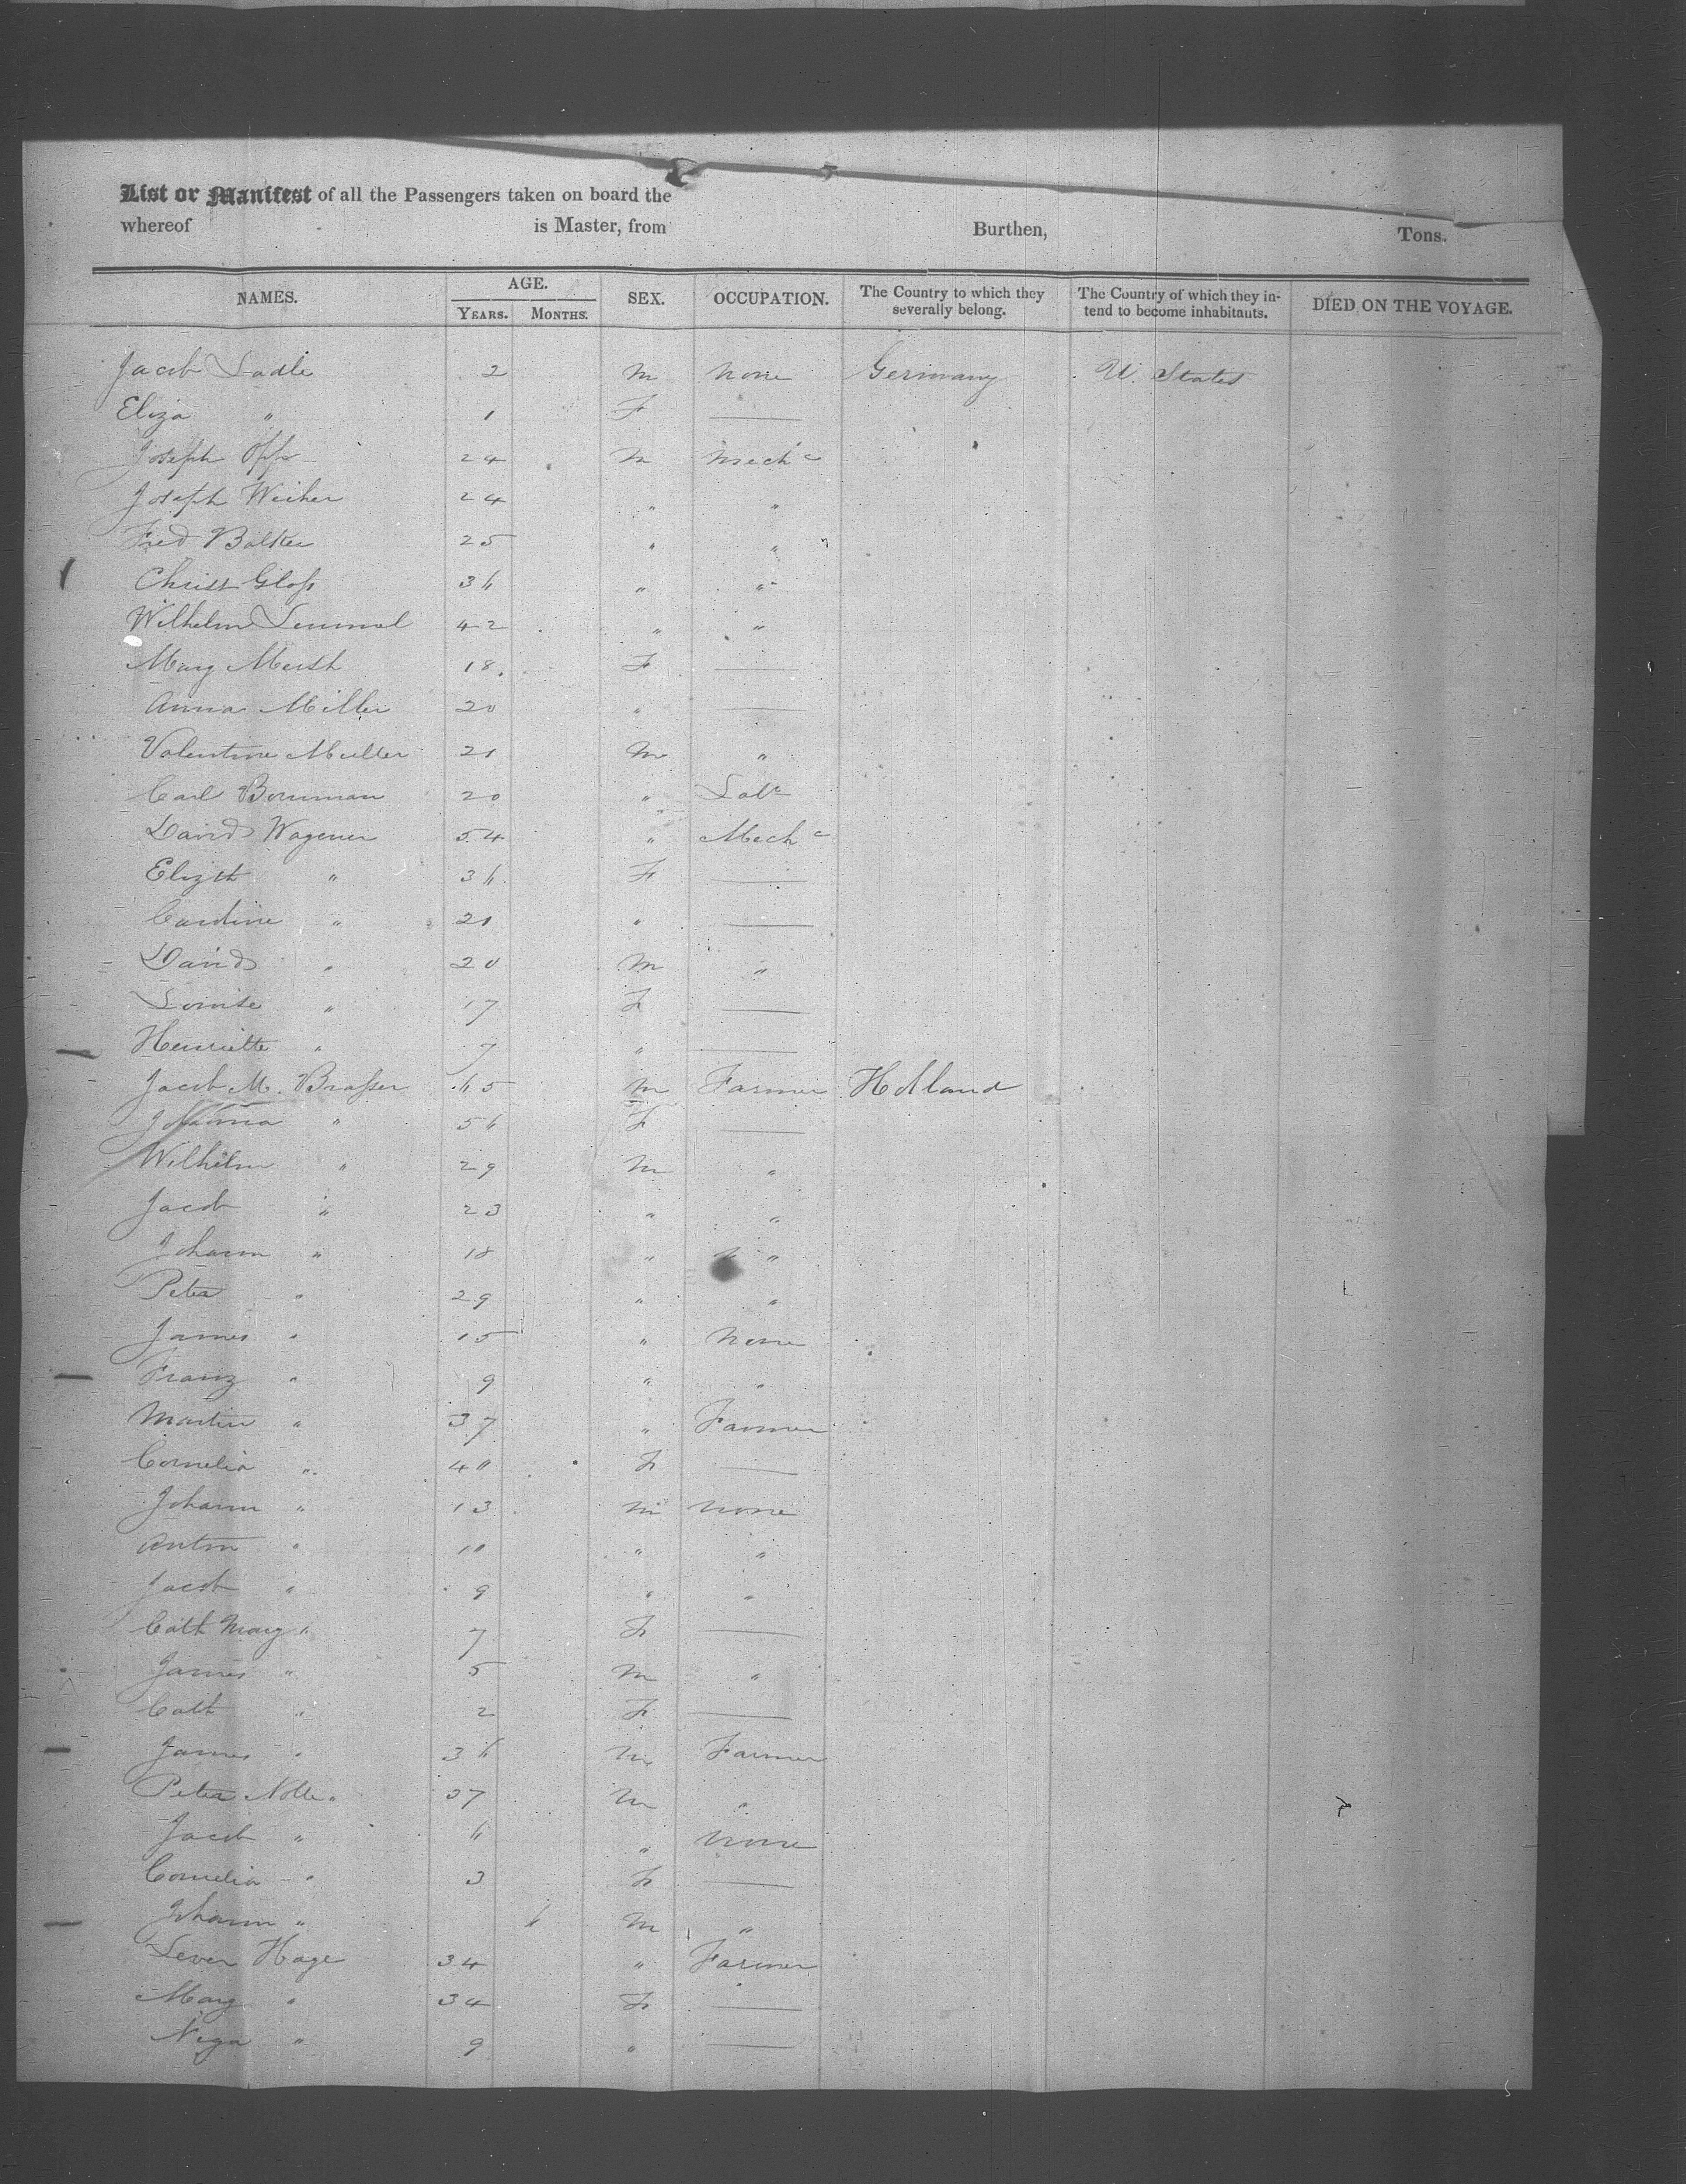 List or Manifest of all the Passengers taken on board the
whereof is Master, from Burthen, Tons.
NAMES. AGE. YEARS. MONTHS. SEX. OCCUPATION. The Country to which they severally belong. The Country of which they intend to become inhabitants. DIED ON THE VOYAGE.
Jacob Sadle 2 m none Germany U. States
Eliza " 1 F —
Joseph Opp 24 m Mechc
Joseph Weiher 24 " "
Fred Balker 25 " "
Christ Gloss 36 " "
Wilhelm 42 " "
Mary Mersh 18. F —
Anna Miller 20 " —
Valentine Muller 21 m "
Carl Bornman 20 " Labr
David Wagener 54 " Mechc
Elizth " 36 F —
Caroline " 21 " —
David " 20 m "
Louise " 17 F —
Henriette " 7 " —
Jacob M. Brasser 65 m Farmer Holland
Johanna " 56 F —
Wilhelm " 29 m "
Jacob " 23 " "
Johann " 18 " "
Peter " 29 " "
James " 15 " None
Franz " 9 " "
Martin " 37 " Farmer
Cornelia " 40 F —
Johann " 13 m none
Anton " 10 " "
Jacob " 9 " "
Cath Mary " 7 F —
James " 5 m "
Cath " 2 F —
James " 36 m Farmer
Peter Nolle " 37 m "
Jacob " 6 " None
Cornelia " 3 F —
Johann " 6 m "
Lever Hage 34 " Farmer
Mary " 34 F —
" 9 " —